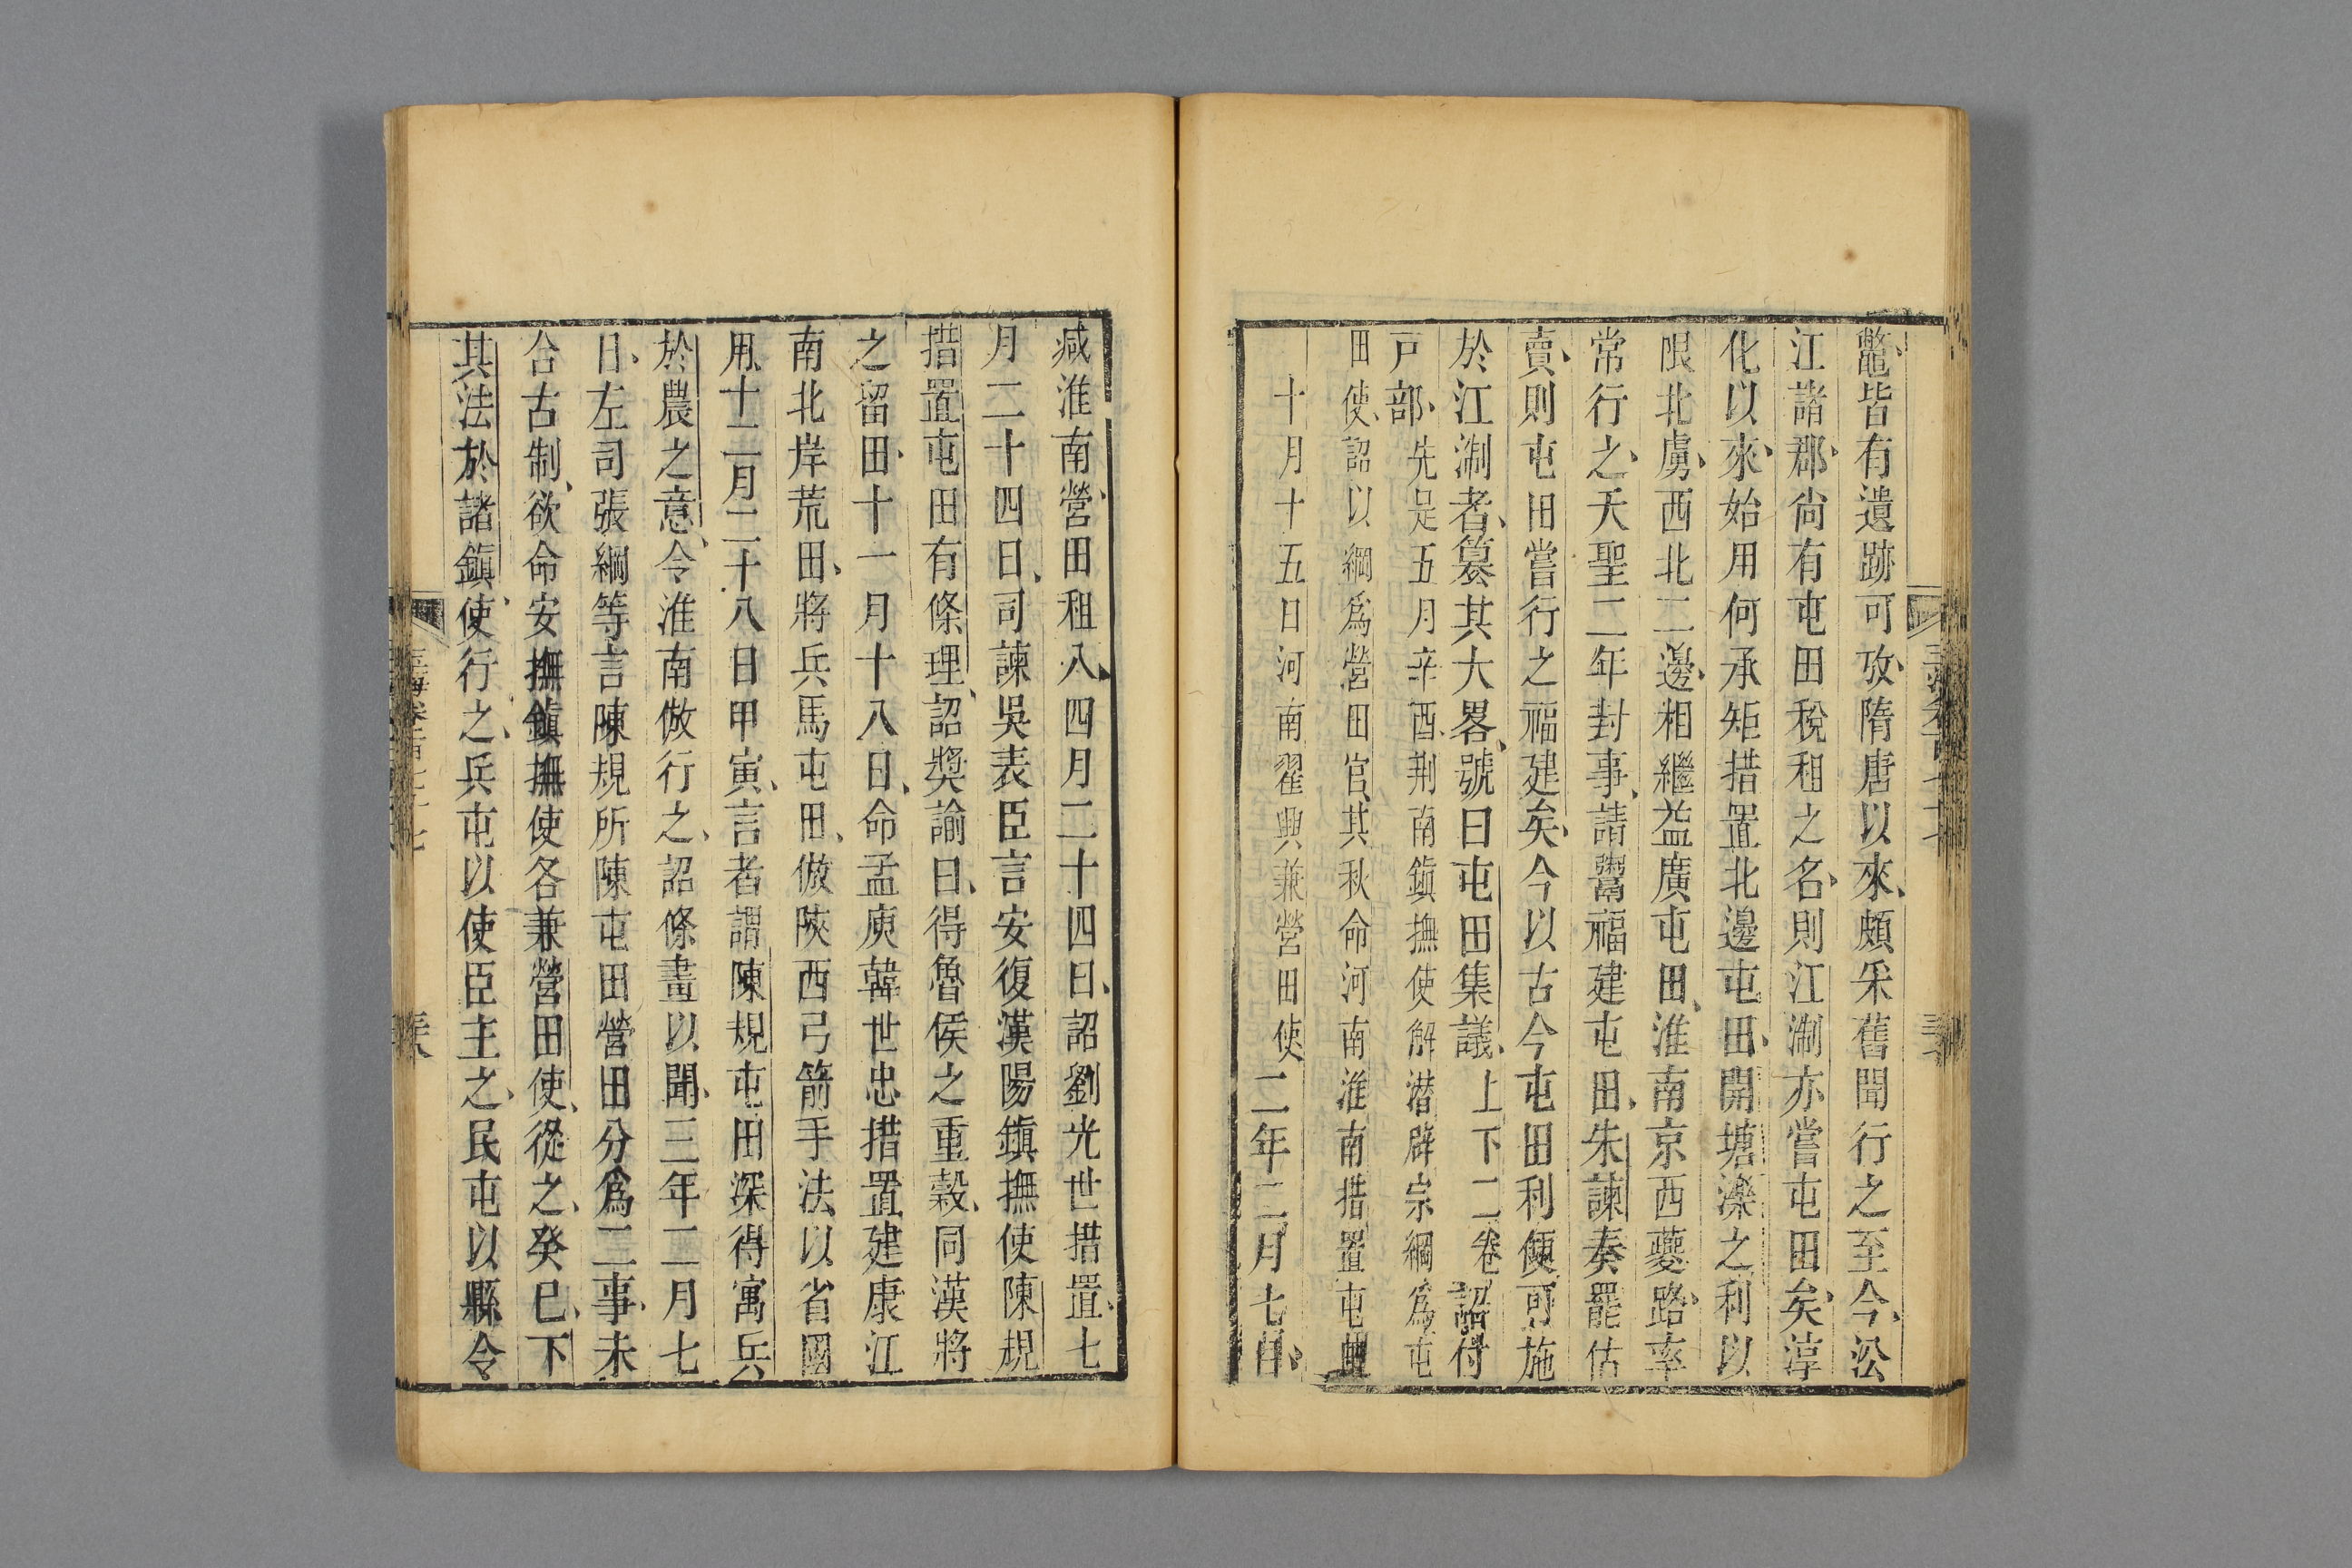 鼈皆有遺跡可攷隋唐以來頗采舊聞行之至今㳂
江諸郡尙有屯田稅租之名則江淛亦嘗屯田矣淳
化以來始用何承矩措置北邊屯田開塘濼之利以
限北虜西北二邊相繼益廣屯田淮南京西夔路率
常行之天聖二年封事請鬻福建屯田朱諫奏罷估
賣則屯田嘗行之福建矣今以古今屯田利便可施
於江淛者纂其大畧號曰屯田集議上下二卷詔付
戸部先是五月辛酉荆南鎭撫使解潛辟宗綱爲屯
田使詔以綱爲營田官其秋命河南淮南措置屯
十月十五日河南翟興兼營田使二年二月七日
減淮南營田租八四月二十四日詔劉光世措置七
月二十四日司諫吳表臣言安復漢陽鎭撫使陳規
措置屯田有條理詔獎諭曰得魯侯之重穀同漢將
之留田十一月十八日命孟庾韓世忠措置建康江
南北岸荒田將兵馬屯田倣陝西弓箭手法以省國
用十二月二十八日甲寅言者謂陳規屯田深得寓兵
於農之意令淮南倣行之詔條畫以聞三年二月七
日左司張綱等言陳規所陳屯田營田分爲二事未
合古制欲命安撫鎭撫使各兼營田使從之癸巳下
其法於諸鎭使行之兵屯以使臣主之民屯以縣令